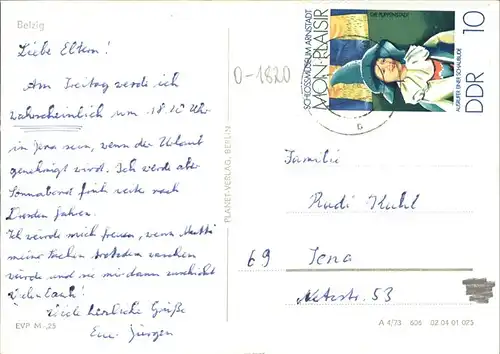 Belzig
Liebe Eltern!
Am Freitag werde ich
wahrscheinlich um 18.10 Uhr
in Jena sein, wenn der Urlaub
genehmigt wird. Ich werde aber
Sonnabend früh weiter nach
Dresden fahren.
Ich würde mich freuen, wenn Mutti
meine Sachen trotzdem waschen
würde und sie mir dann zuschickt
Vielen Dank!
Viele herzliche Grüße
Euer Jürgen
EVP M -,25
0-1820
PLANET-VERLAG, BERLIN
SCHLOSSMUSEUM ARNSTADT
MON PLAISIR
DIE PUPPENSTADT
AUSRUFER EINER SCHAUBUDE
DDR 10
Familie
Rudi Kuhl
69 Jena
53
A 4/73 606 02 04 01 025